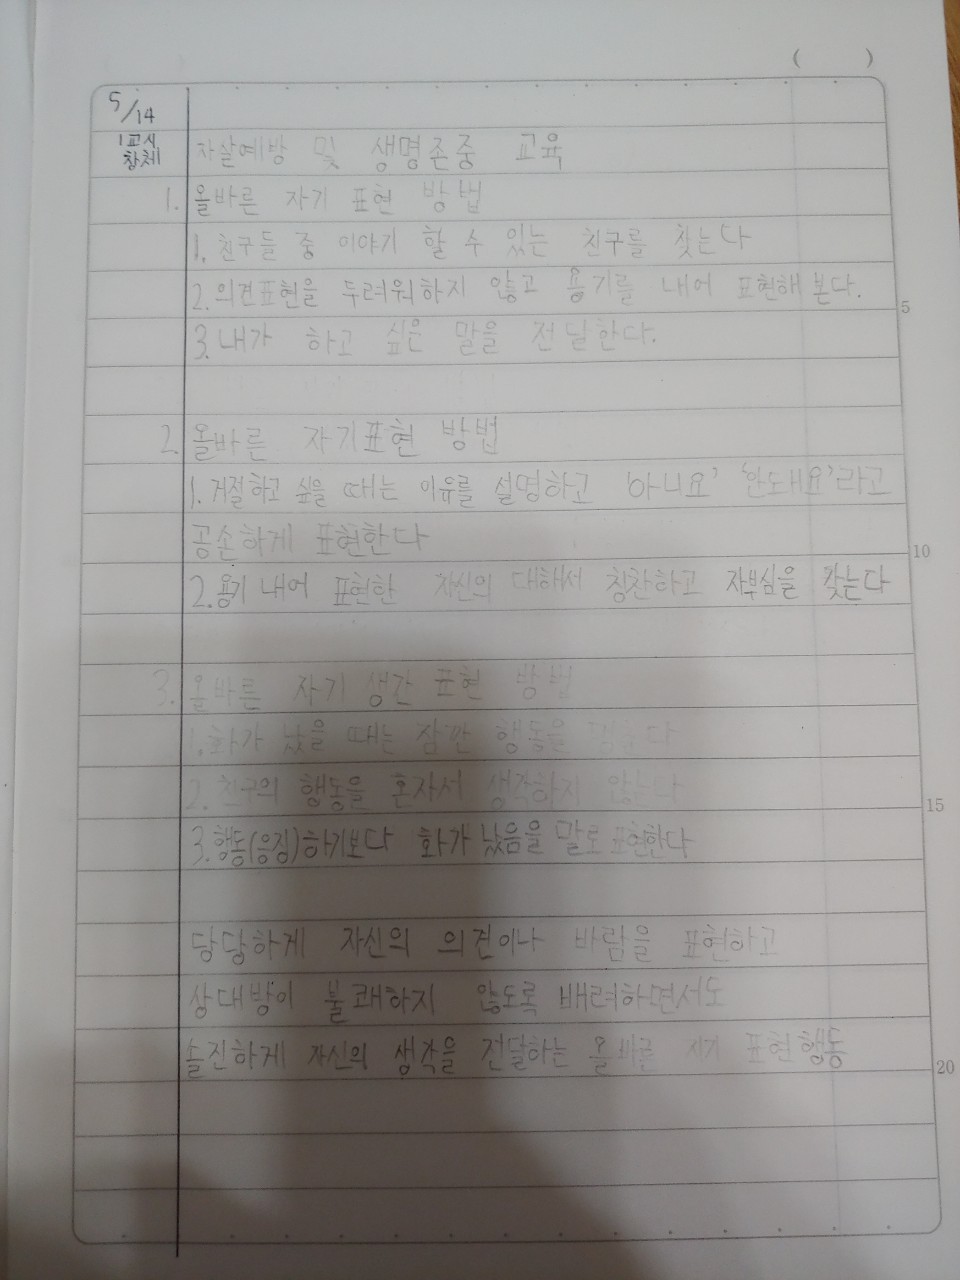 ( )
5/14
1교시
창체
자살예방 및 생명존중 교육
1. 올바른 자기 표현 방법
1. 친구들 중 이야기 할 수 있는 친구를 찾는다
2. 의견표현을 두려워하지 않고 용기를 내어 표현해 본다.
5
3. 내가 하고 싶은 말을 전달한다.
2. 올바른 자기표현 방법
1. 거절하고 싶을 때는 이유를 설명하고 '아니요' '안돼요'라고
공손하게 표현한다
10
2. 용기 내어 표현한 자신의 대해서 칭찬하고 자부심을 갖는다
3. 올바른 자기 생각 표현 방법
1. 화가 났을 때는 잠깐 행동을 멈춘다
2. 친구의 행동을 혼자서 생각하지 않는다
15
3. 행동(응징)하기보다 화가 났음을 말로 표현한다
당당하게 자신의 의견이나 바람을 표현하고
상대방이 불쾌하지 않도록 배려하면서도
솔진하게 자신의 생각을 전달하는 올바른 자기 표현 행동
20